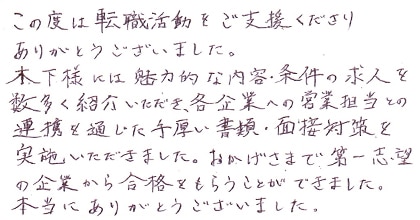 この度は転職活動をご支援くださり
ありがとうございました。
木下様には魅力的な内容・条件の求人を
数多く紹介いただき、各企業への営業担当との
連携を通じた手厚い書類・面接対策を
実施いただきました。おかげさまで第一志望
の企業から合格をもらうことができました。
本当にありがとうございました。